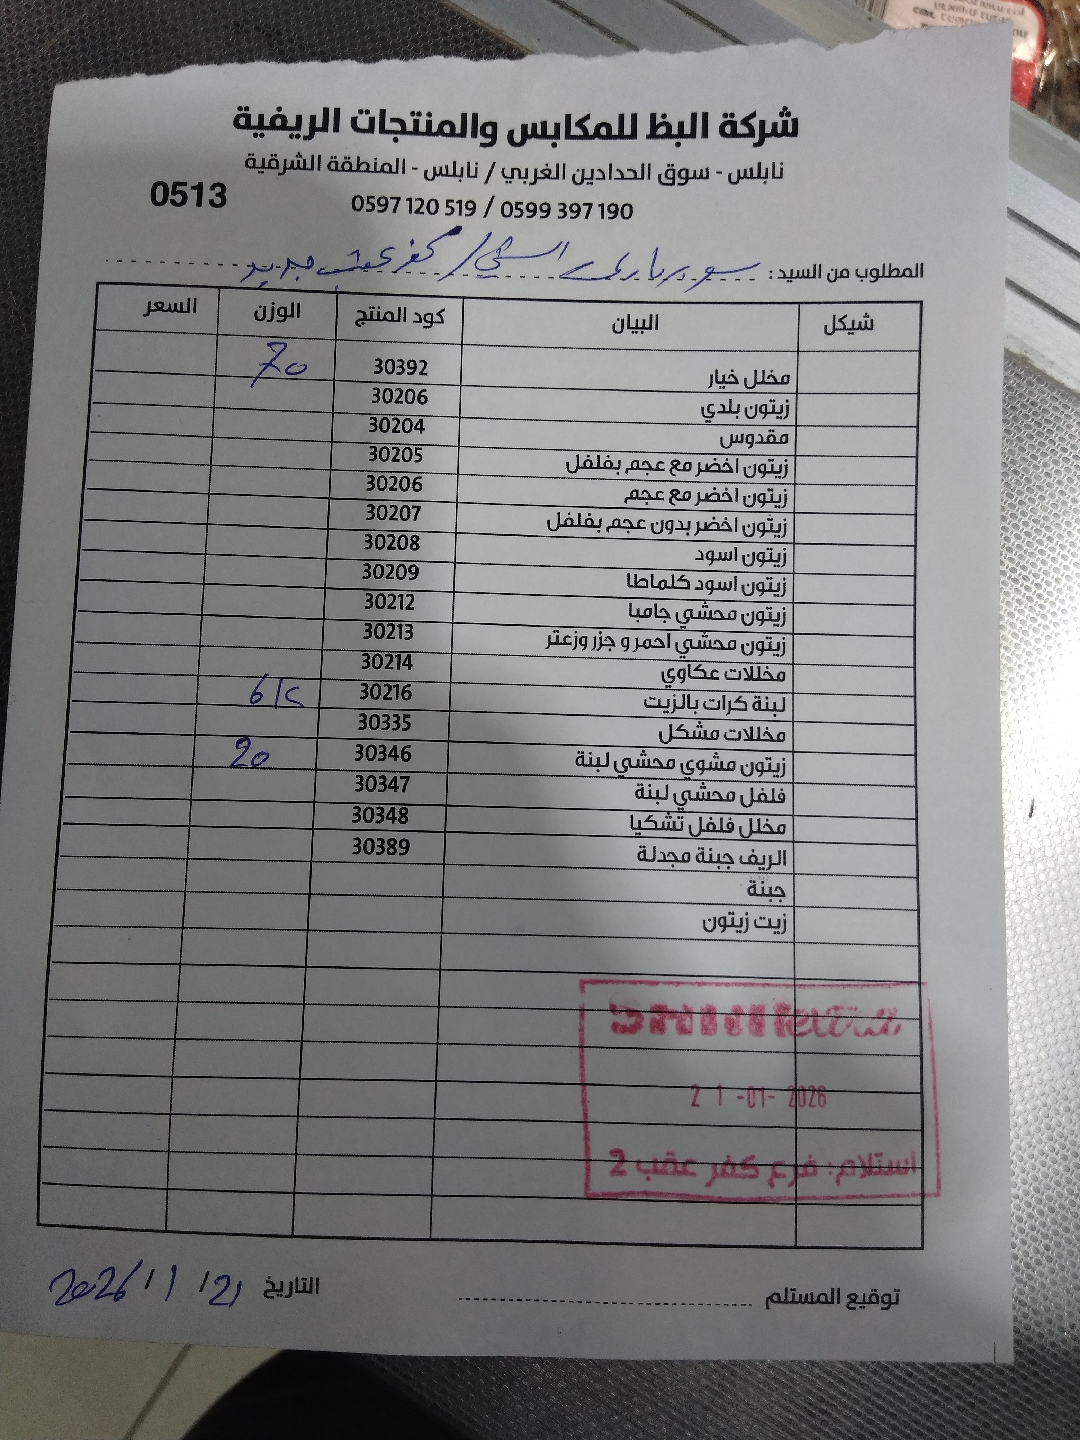 شركة البظ للمكابس والمنتجات الريفية
نابلس - سوق الحدادين الغربي / نابلس - المنطقة الشرقية
0513
0597 120 519 / 0599 397 190
المطلوب من السيد : سوبر ماركت / كفر عقب جديد
شيكل البيان كود المنتج الوزن السعر
مخلل خيار 30392 70
زيتون بلدي 30206
مقدوس 30204
زيتون اخضر مع عجم بفلفل 30205
زيتون اخضر مع عجم 30206
زيتون اخضر بدون عجم بفلفل 30207
زيتون اسود 30208
زيتون اسود كلماطا 30209
زيتون محشي جامبا 30212
زيتون محشي احمر و جزر وزعتر 30213
مخللات عكاوي 30214
لبنة كرات بالزيت 30216
مخللات مشكل 30335
زيتون مشوي محشي لبنة 30346 20
فلفل محشي لبنة 30347
مخلل فلفل تشكيا 30348
الريف جبنة مجدلة 30389
جبنة
زيت زيتون
21 -01- 2026
استلام: فرع كفر عقب 2
توقيع المستلم
التاريخ 21 / 1 / 2026